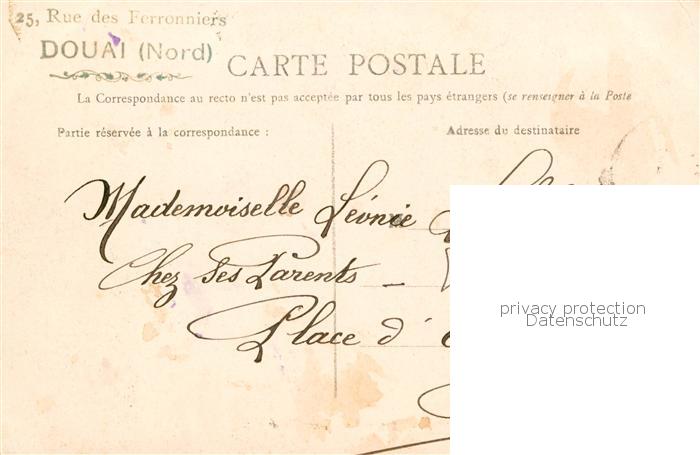 25, Rue des Ferronniers
DOUAI (Nord)
CARTE POSTALE
La Correspondance au recto n'est pas acceptée par tous les pays étrangers (se renseigner à la Poste
Partie réservée à la correspondance :
Adresse du destinataire
Mademoiselle Léonie
Chez Ses Parents -
Place d'
privacy protection
Datenschutz